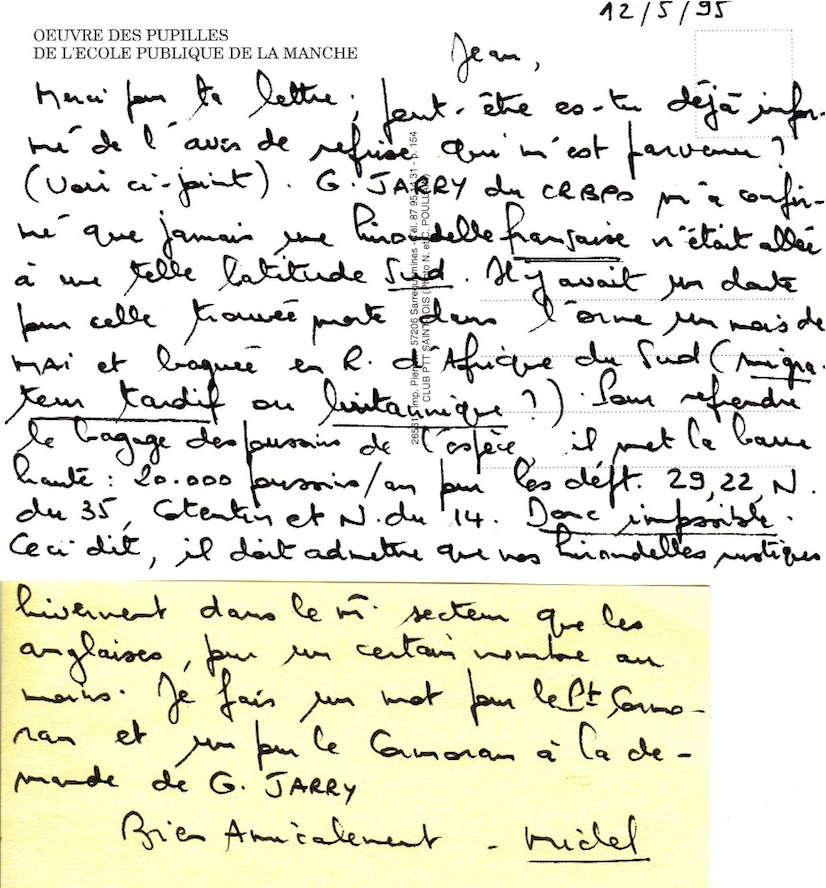 12/5/95
OEUVRE DES PUPILLES
DE L'ECOLE PUBLIQUE DE LA MANCHE
Jean,
Merci pour ta lettre ; peut-être es-tu déjà infor-
mé de l'avis de reprise qui m'est parvenu ?
(Voir ci-joint). G. JARRY du CRBPO m'a confir-
mé que jamais une hirondelle française n'était allée
à une telle latitude Sud. Il y avait un doute
pour celle trouvée morte dans l'Orne un mois de
MAI et baguée en R. d'Afrique du Sud (migra-
teur tardif ou britannique ?) Pour reprendre
le bagage des poussins de l'espèce, il met la barre
haute : 20.000 poussins/an pour les dépt. 29, 22, N.
du 35, Cotentin et N. du 14. Donc impossible.
Ceci dit, il doit admettre que nos hirondelles rustiques
hivernent dans le m. secteur que les
anglaises, pour un certain nombre au
moins. Je fais un mot pour le Pt Cormo-
ran et un pour le Cormoran à la de-
mande de G. JARRY
Bien Amicalement - Michel
57206 Sarreguemines - Tél. 87 95
p. 154
CLUB PTT SAINT